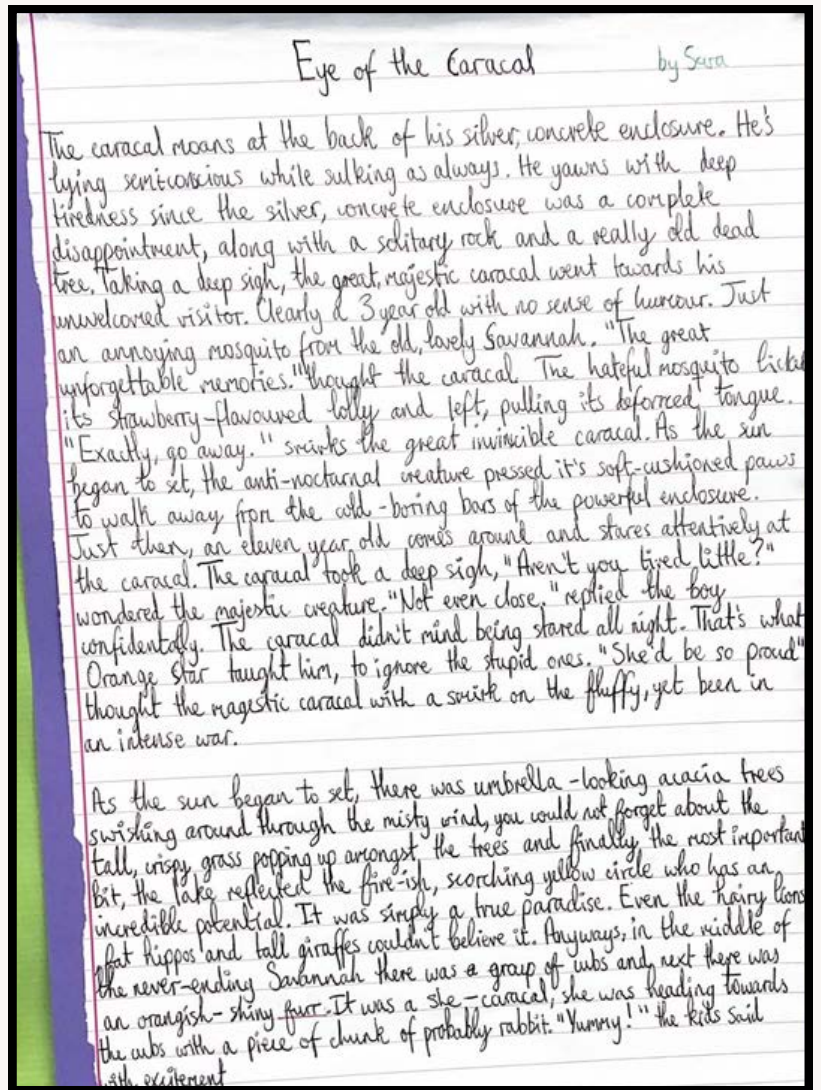 Eye of the Caracal by Sara
The caracal moans at the back of his silver, concrete enclosure. He's
lying semiconscious while sulking as always. He yawns with deep
tiredness since the silver, concrete enclosure was a complete
disappointment, along with a solitary rock and a really old dead
tree. Taking a deep sigh, the great, majestic caracal went towards his
unwelcomed visitor. Clearly a 3 year old with no sense of humour. Just
an annoying mosquito from the old, lovely Savannah. "The great
unforgettable memories." thought the caracal. The hateful mosquito licked
its strawberry-flavoured lolly and left, pulling its deformed tongue.
"Exactly, go away." smirks the great invincible caracal. As the sun
began to set, the anti-noctarnal creature pressed it's soft-cushioned paws
to walk away from the cold-boring bars of the powerful enclosure.
Just then, an eleven year old comes around and stares attentively at
the caracal. The caracal took a deep sigh, "Aren't you tired, little?"
wondered the majestic creature. "Not even close," replied the boy
confidentally. The caracal didn't mind being stared all night. That's what
Orange Star taught him, to ignore the stupid ones. "She'd be so proud"
thought the magestic caracal with a smirk on the fluffy, yet been in
an intense war.
As the sun began to set, there was umbrella-looking acacia trees
swishing around through the misty wind, you would not forget about the
tall, crispy grass popping up amongst the trees and finally, the most important
bit, the lake reflected the fire-ish, scorching yellow circle who has an
incredible potential. It was simply a true paradise. Even the hairy lions
fat hippos and tall giraffes couldn't believe it. Anyways, in the middle of
the never-ending Savannah there was a group of cubs and next there was
an orangish-shiny furr. It was a she-caracal, she was heading towards
the cubs with a piece of chunk of probably rabbit. "Yummy!" the kids said
with excitement